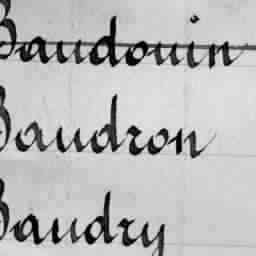 Baudouin
Baudron
Baudry